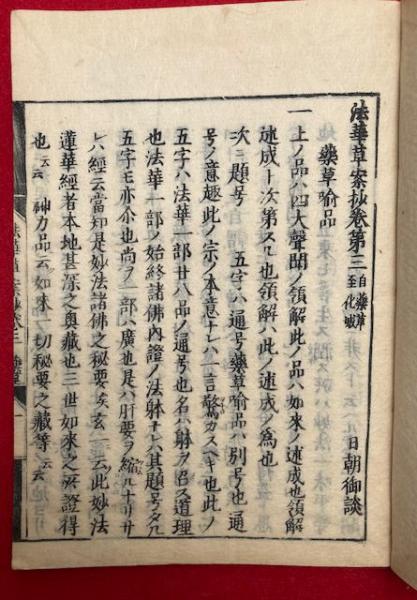 法華草案抄卷第三 自藥草至化城 日朝御談
藥草喻品
一上ノ品ハ四大聲聞ノ領解此ノ品ハ如來ノ述成也領解
述成ト次第スル也領解ハ此ノ述成ノ為也
次ニ題号 五字ハ通号藥草喻品ハ別号也通
号ノ意趣此ノ宗ノ本意ナレハ一言驚カスヘキ也此ノ
五字ハ法華一部廿八品ノ通号也名ハ躰ヲ召ス道理
也法華一部ノ始終諸佛內證ノ法躰ナレハ其題号タル
五字モ亦尒也尚ヲ一部ハ廣也是ハ肝要ヲ縮ル十リサ
レハ經云當知是妙法諸佛之秘要矣玄一云此妙法
蓮華經者本地甚深之奧藏也三世如來之所證得
也云云 神力品云如來一切秘要之藏等云云